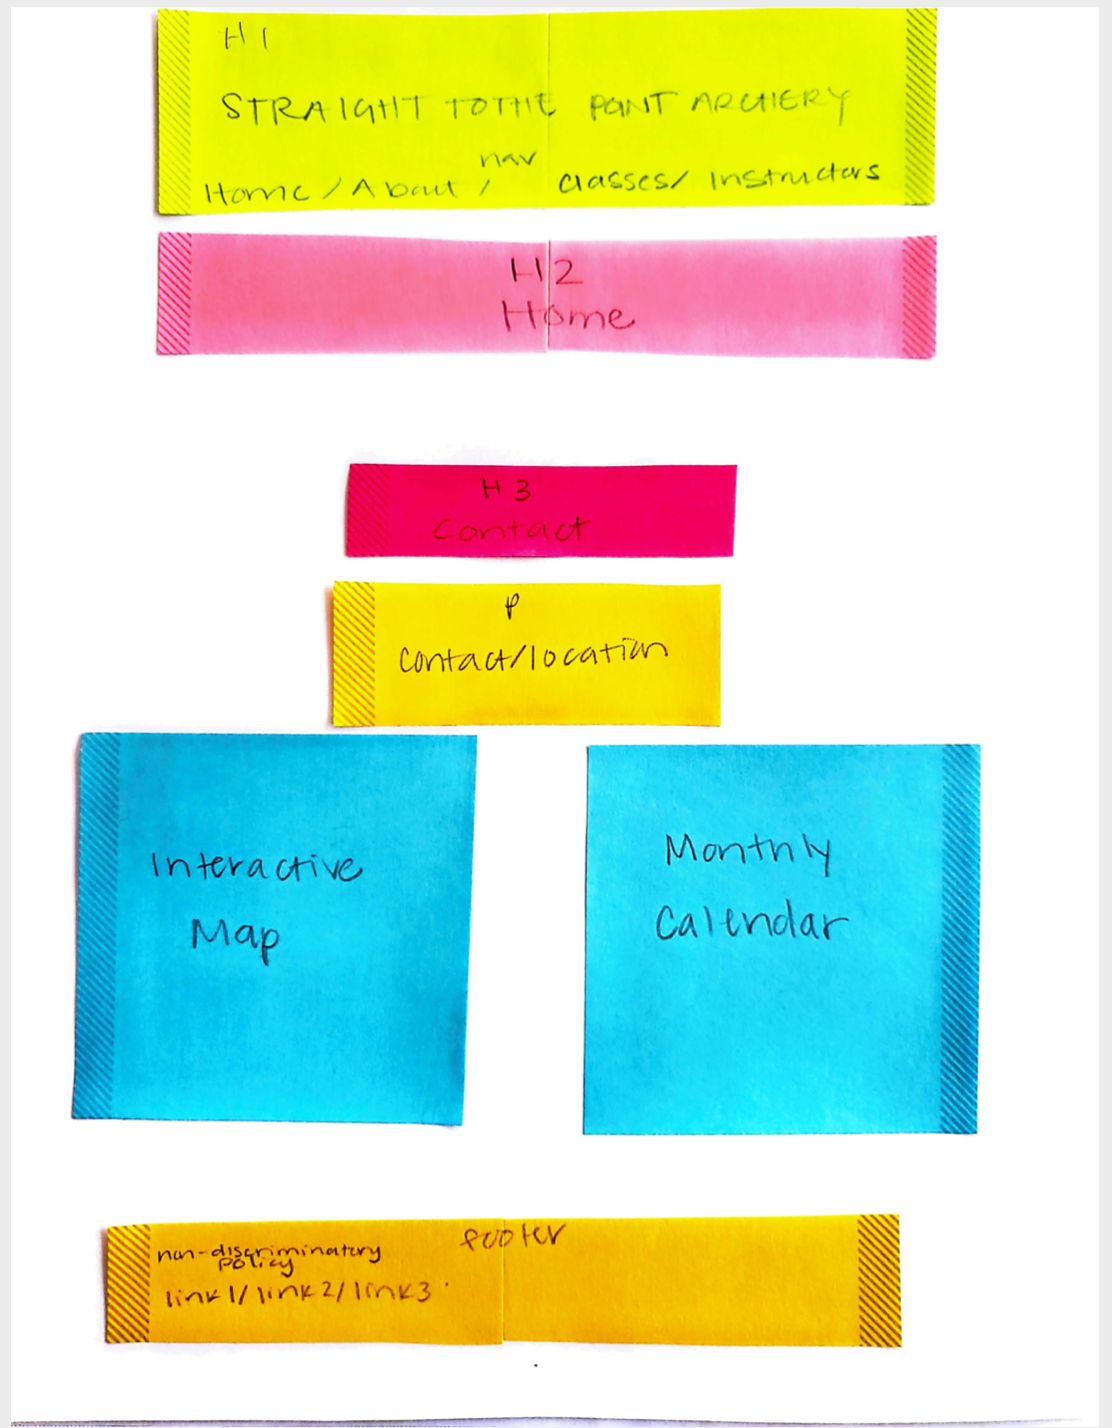 H1
STRAIGHT TO THE POINT ARCHERY
nav
Home / About / classes / Instructors
H2
Home
H3
Contact
P
Contact/location
Interactive
Map
Monthly
Calendar
footer
non-discriminatory
policy
link1/link2/link3